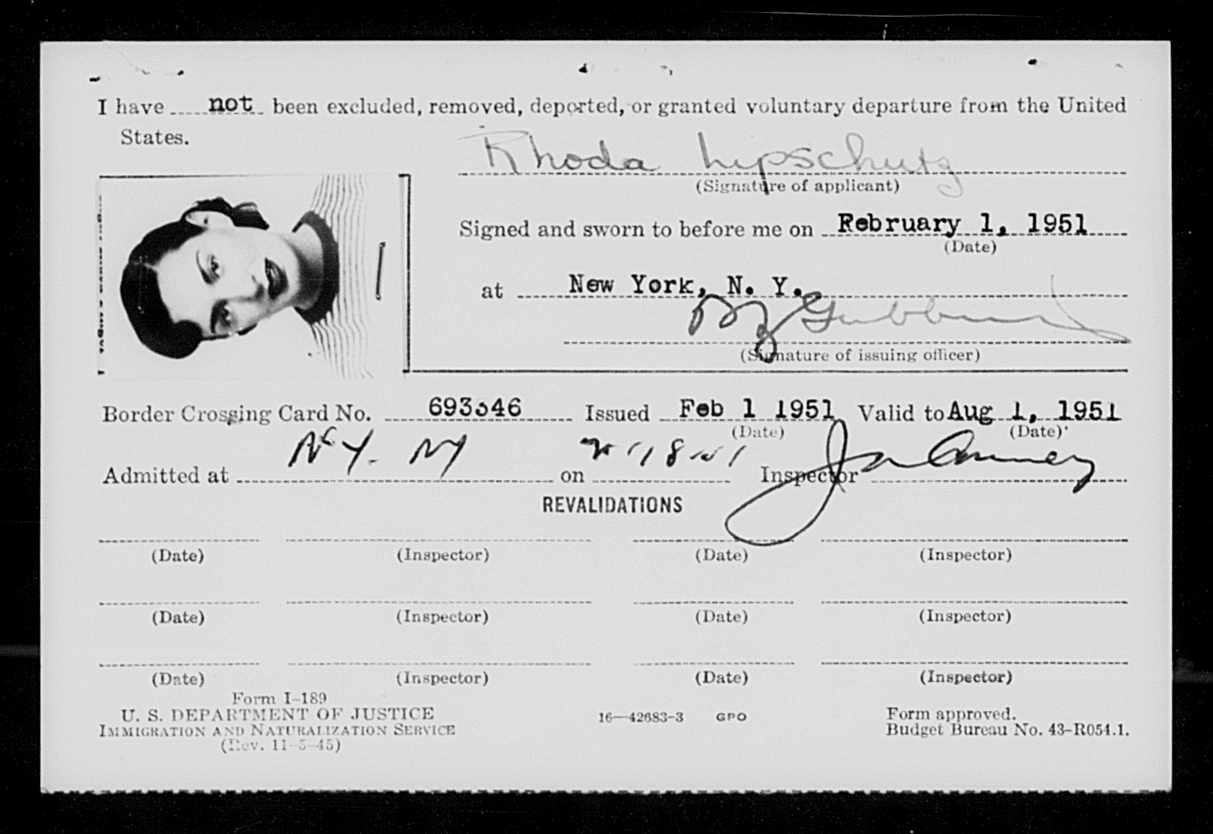 I have not been excluded, removed, deported, or granted voluntary departure from the United
States.
Rhoda Lipschutz
(Signature of applicant)
Signed and sworn to before me on February 1, 1951
(Date)
at New York, N. Y.
(Signature of issuing officer)
Border Crossing Card No. 693346 Issued Feb 1 1951 Valid to Aug 1, 1951
(Date) (Date)
Admitted at NY. NY on Inspector
REVALIDATIONS
(Date) (Inspector) (Date) (Inspector)
(Date) (Inspector) (Date) (Inspector)
(Date) (Inspector) (Date) (Inspector)
Form I-189
U. S. DEPARTMENT OF JUSTICE
IMMIGRATION AND NATURALIZATION SERVICE
(Rev. 11-5-45)
16—42683-3 GPO
Form approved.
Budget Bureau No. 43-R054.1.